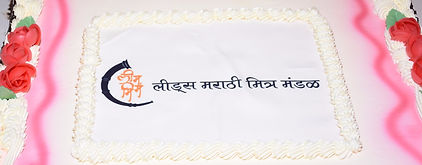 लीड्स मराठी मित्र मंडळ